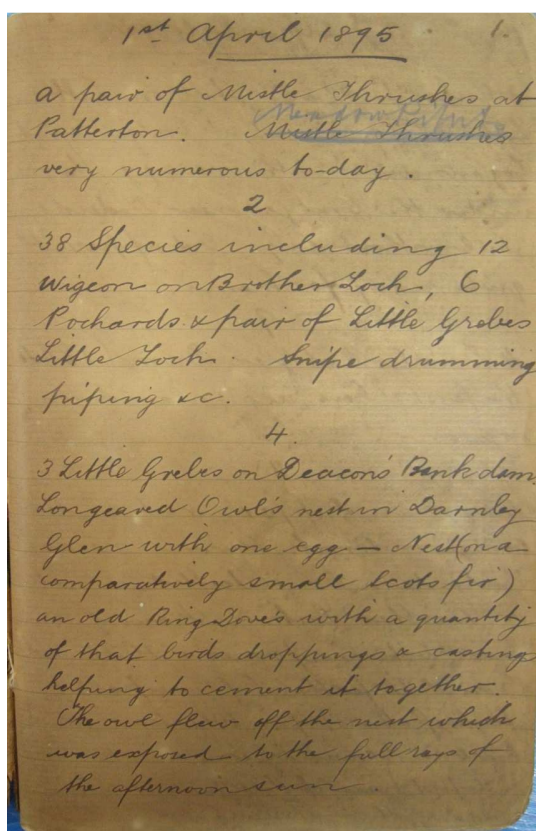 1st April 1895 1.
a pair of Mistle Thrushes at
Patterton. Meadow Pipits
Mistle Thrushes
very numerous to-day.
2
38 Species including 12
Wigeon on Brother Loch, 6
Pochards & pair of Little Grebes
Little Loch. Snipe drumming
piping &c.
4.
3 Little Grebes on Deacon's Bank dam.
Longeared Owl's nest in Darnley
Glen with one egg — Nest (on a
comparatively small Scots fir)
an old Ring Dove's with a quantity
of that birds droppings & casting
helping to cement it together.
The owl flew off the nest which
was exposed to the full rays of
the afternoon sun.